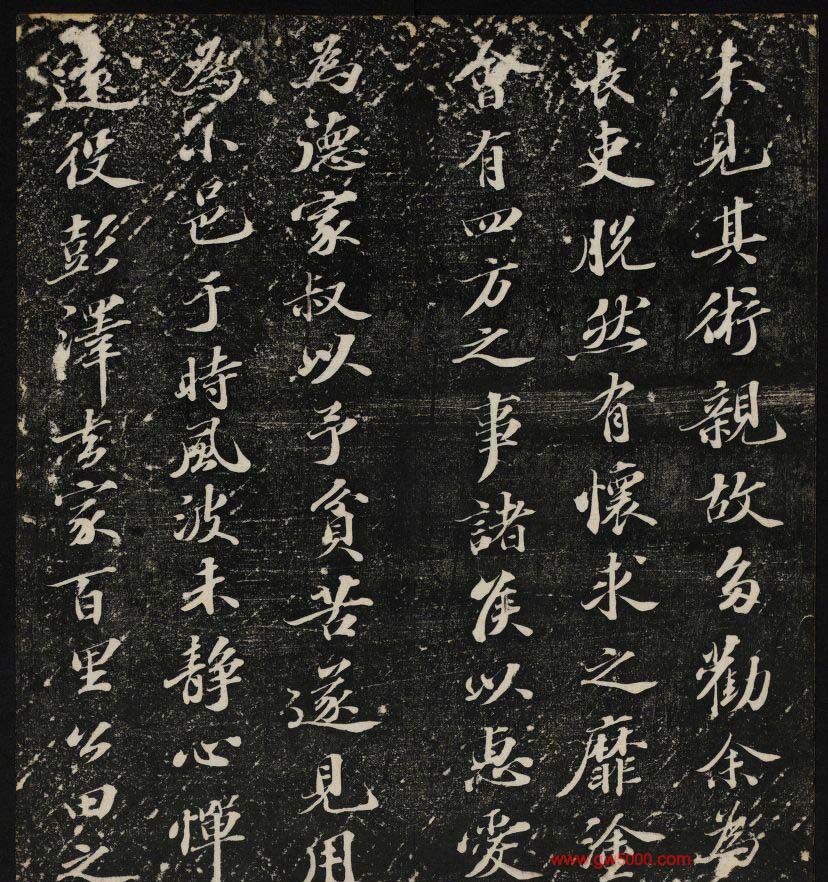 未見其術親故多勸余為
長吏脫然有懷求之靡塗
會有四方之事諸侯以惠愛
為德家叔以予貧苦遂見用
為小邑于時風波未靜心憚
遠役彭澤去家百里公田之
www.gw5000.com